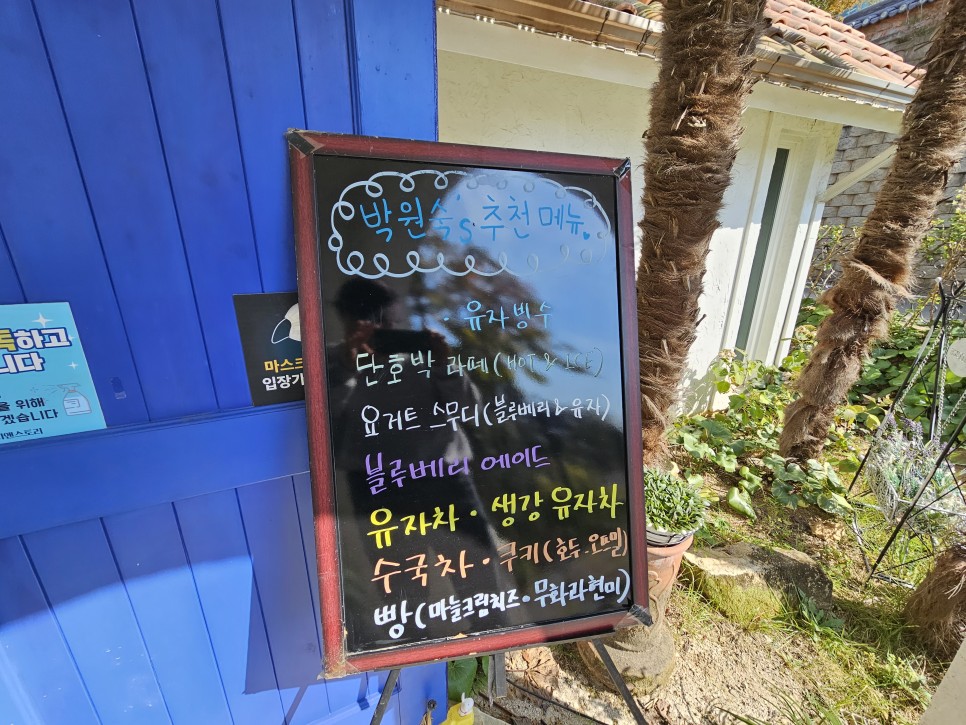 박원숙's 추천 메뉴.
· 유자빙수
단호박 라떼 (HOT & ICE)
요거트 스무디 (블루베리 & 유자)
블루베리 에이드
유자차 · 생강 유자차
수국차 · 쿠키 (호두. 오트밀)
빵 (마늘크림치즈 · 무화과현미)
독하고
니다
을 위해
겠습니다
마스크
입장가